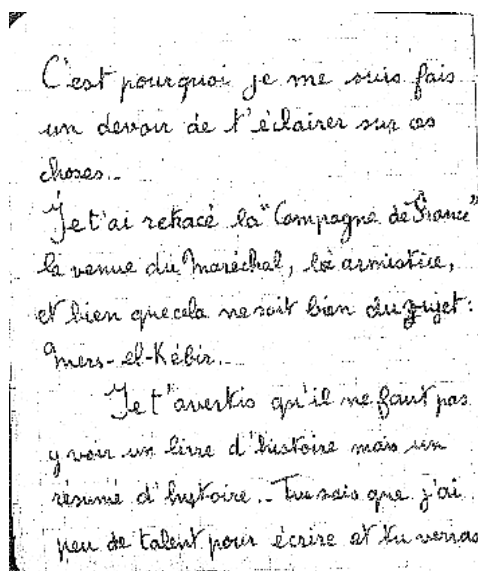 C'est pourquoi je me suis fais
un devoir de t'éclairer sur ces
choses..
Je t'ai retracé la "Campagne de France"
la venue du Maréchal, la armistice,
et bien que cela ne soit bien du sujet :
Mers-el-Kébir..
Je t'avertis qu'il ne faut pas
y voir un livre d'histoire mais un
résumé d'histoire.. Tu sais que j'ai
peu de talent pour écrire et tu verras